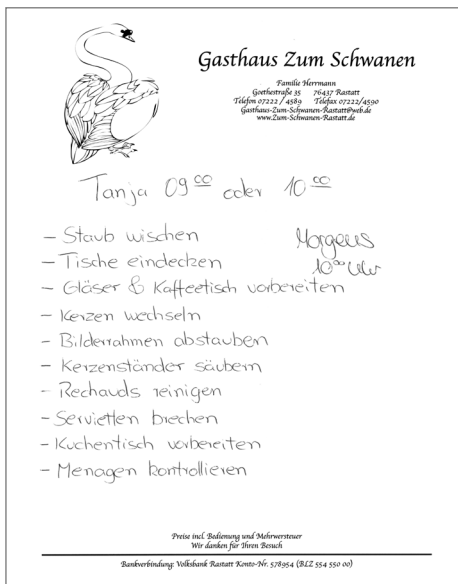 Gasthaus Zum Schwanen
Familie Herrmann
Goethestraße 35 76437 Rastatt
Telefon 07222 / 4589 Telefax 07222/4590
Gasthaus-Zum-Schwanen-Rastatt@web.de
www.Zum-Schwanen-Rastatt.de
Tanja 09 00 oder 10 00
- Staub wischen
Morgens
- Tische eindecken
10 00 Uhr
- Gläser & Kaffeetisch vorbereiten
- Kerzen wechseln
- Bilderrahmen abstauben
- Kerzenständer säubern
- Rechauds reinigen
- Servietten brechen
- Kuchentisch vorbereiten
- Menagen kontrollieren
Preise incl. Bedienung und Mehrwersteuer
Wir danken für Ihren Besuch
Bankverbindung: Volksbank Rastatt Konto-Nr. 578954 (BLZ 554 550 00)